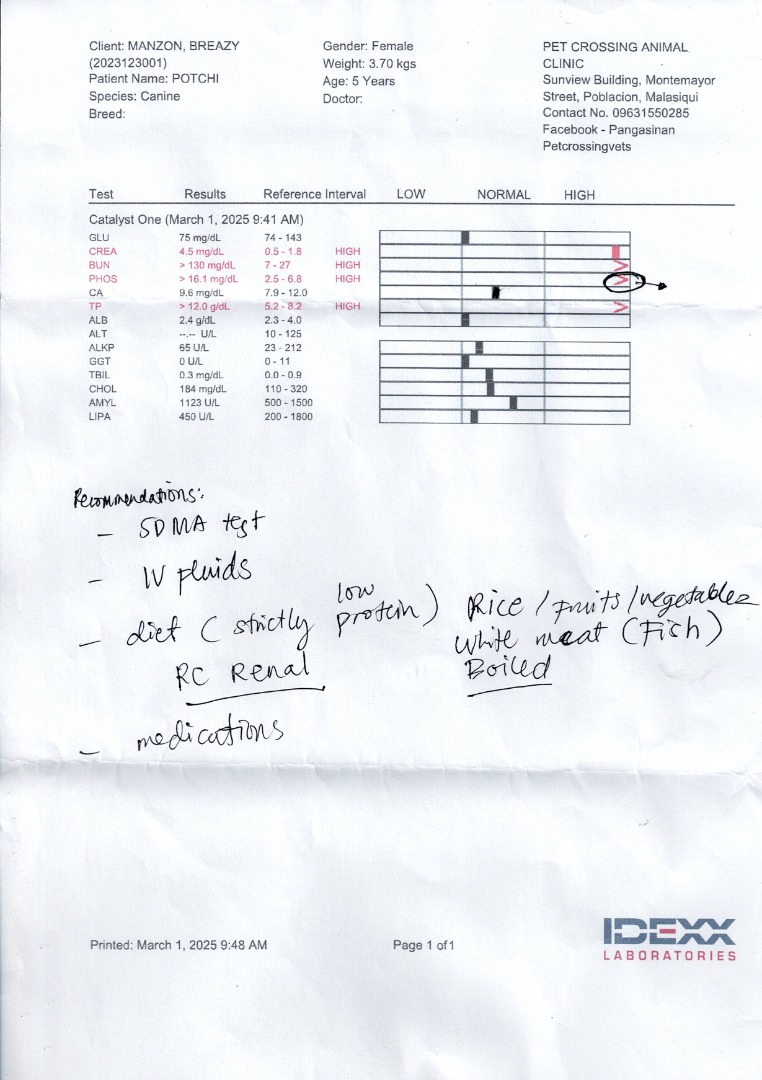 Client: MANZON, BREAZY
(2023123001)
Patient Name: POTCHI
Species: Canine
Breed:
Gender: Female
Weight: 3.70 kgs
Age: 5 Years
Doctor:
PET CROSSING ANIMAL
CLINIC
Sunview Building, Montemayor
Street, Poblacion, Malasiqui
Contact No. 09631550285
Facebook - Pangasinan
Petcrossingvets
Test Results Reference Interval LOW NORMAL HIGH
Catalyst One (March 1, 2025 9:41 AM)
GLU 75 mg/dL 74 - 143
CREA 4.5 mg/dL 0.5 - 1.8 HIGH
BUN > 130 mg/dL 7 - 27 HIGH
PHOS > 16.1 mg/dL 2.5 - 6.8 HIGH
CA 9.6 mg/dL 7.9 - 12.0
TP > 12.0 g/dL 5.2 - 8.2 HIGH
ALB 2.4 g/dL 2.3 - 4.0
ALT --.-- U/L 10 - 125
ALKP 65 U/L 23 - 212
GGT 0 U/L 0 - 11
TBIL 0.3 mg/dL 0.0 - 0.9
CHOL 184 mg/dL 110 - 320
AMYL 1123 U/L 500 - 1500
LIPA 450 U/L 200 - 1800
Recommendations:
- SDMA test
- IV fluids
- diet (strictly low protein)
RC Renal
Rice / Fruits / vegetables
White meat (Fish)
Boiled
- medications
Printed: March 1, 2025 9:48 AM
Page 1 of 1
IDEXX
LABORATORIES